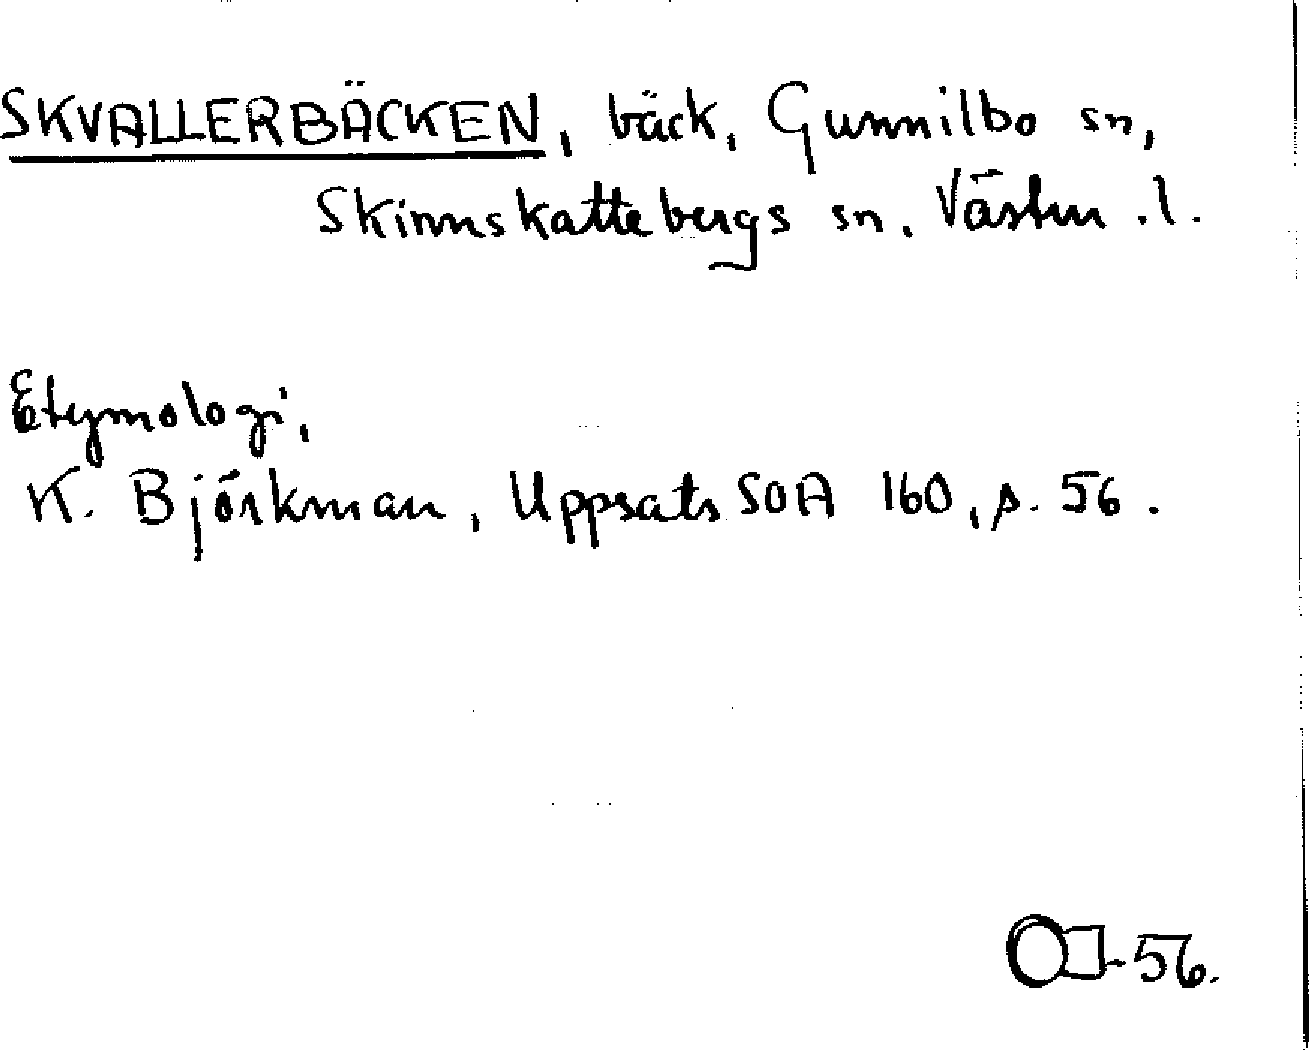 SKVALLERBÄCKEN, bäck, Gunnilbo sn,
Skinnskattebergs sn. Västm. l.
Etymologi,
K. Björkman, Uppsats SOA 160, s. 56.
-56.